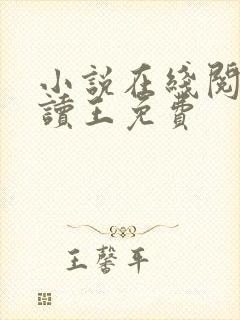 小説在綫閱
讀王免費
王馨平